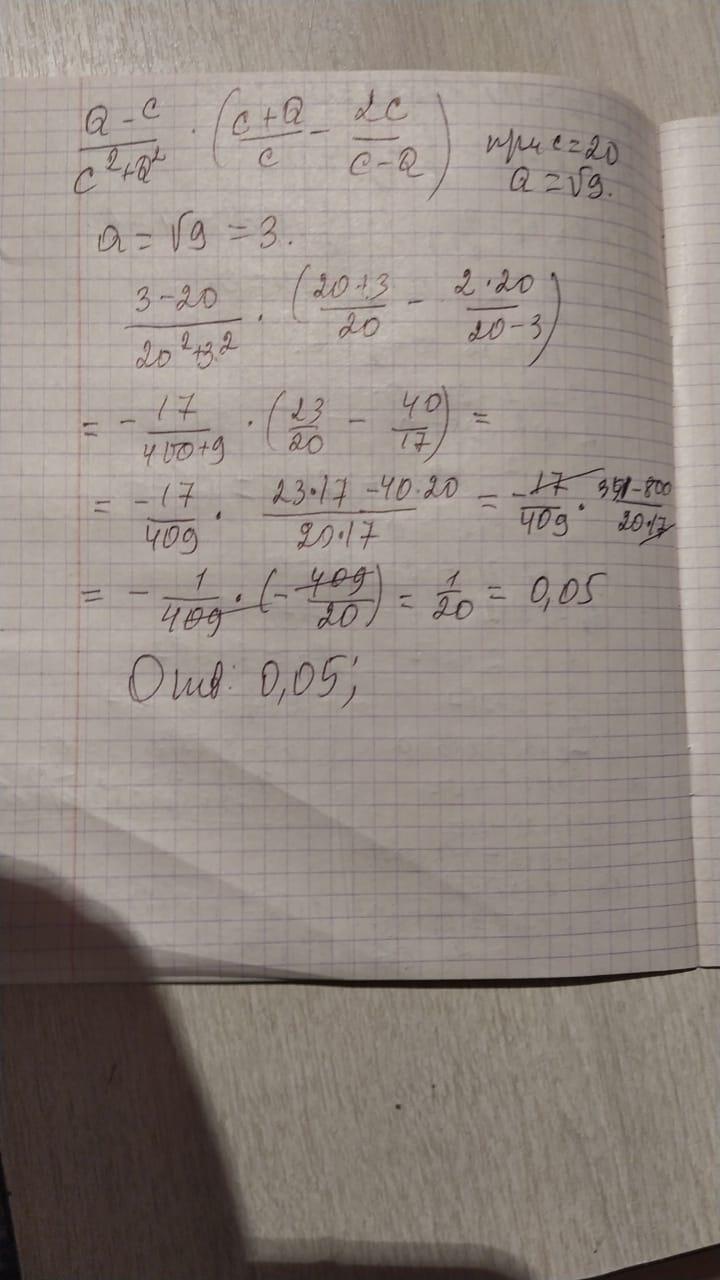 a-c/c²+a² · (c+a/c - 2c/c-a) при c=20
a=√9.
a=√9=3.
3-20/20²+3² · (20+3/20 - 2·20/20-3)
= - 17/400+9 · (23/20 - 40/17) =
= -17/409 · 23·17-40·20/20·17 = -17/409 · 391-800/20·17
= - 1/409 · (- 409/20) = 1/20 = 0,05
Отв: 0,05;